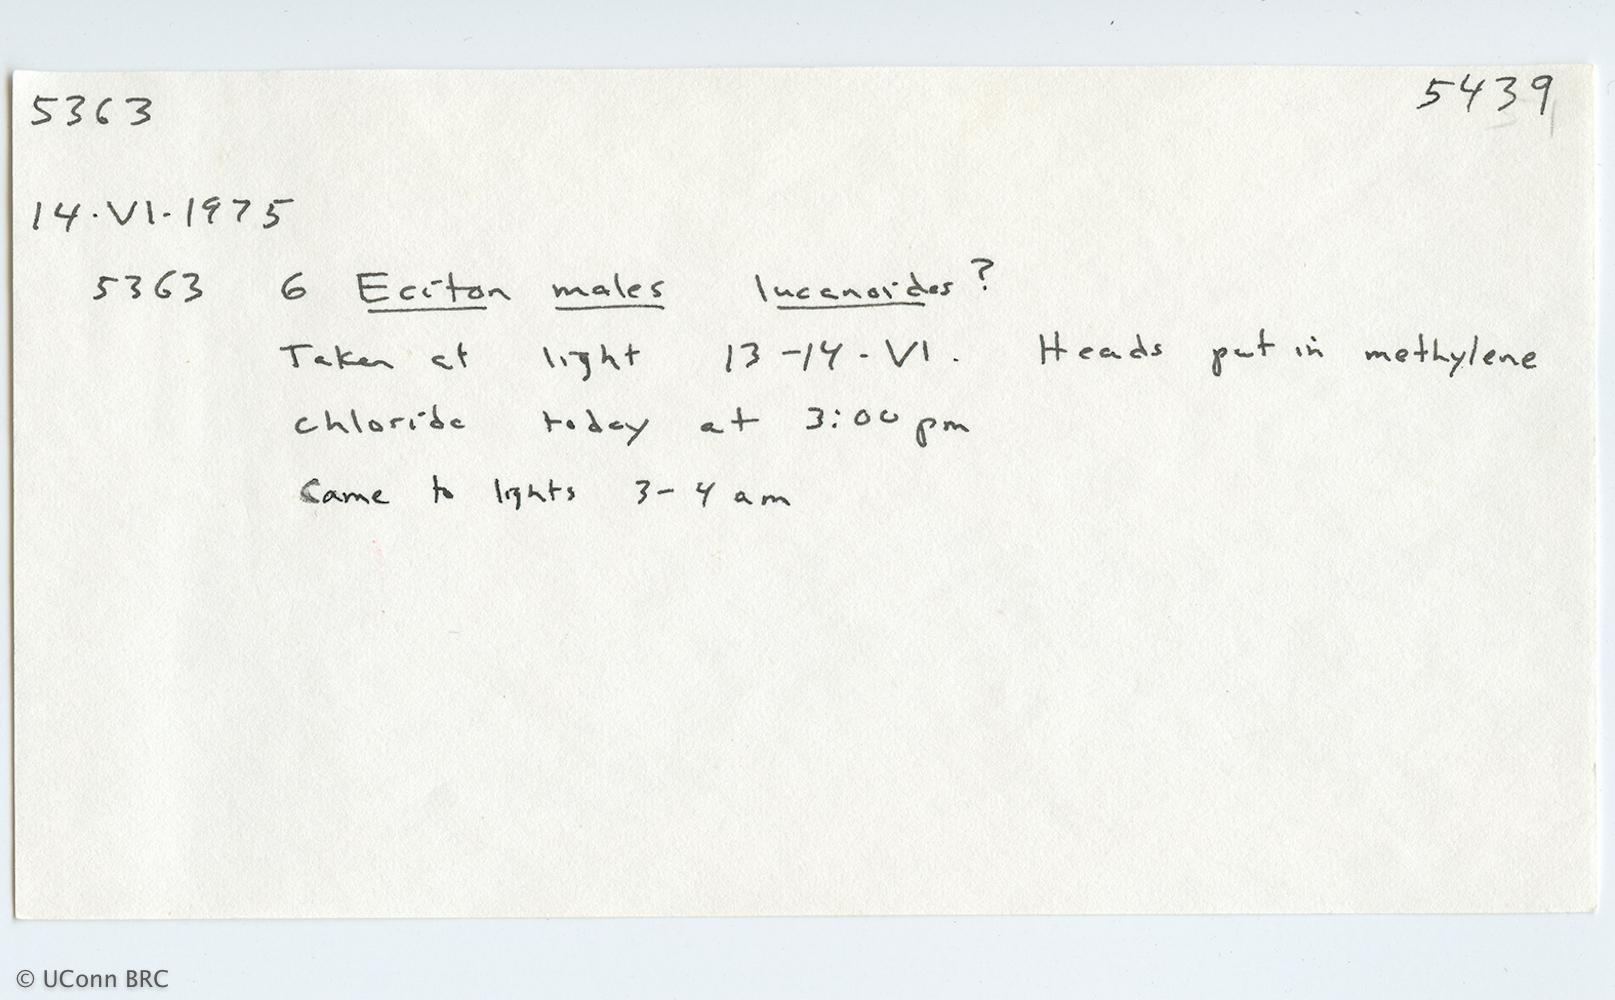 5363 5439
14·VI·1975
5363 6 Eciton males lucanoides?
Taken at light 13-14·VI. Heads put in methylene
chloride today at 3:00 pm
Came to lights 3-4 am
© UConn BRC